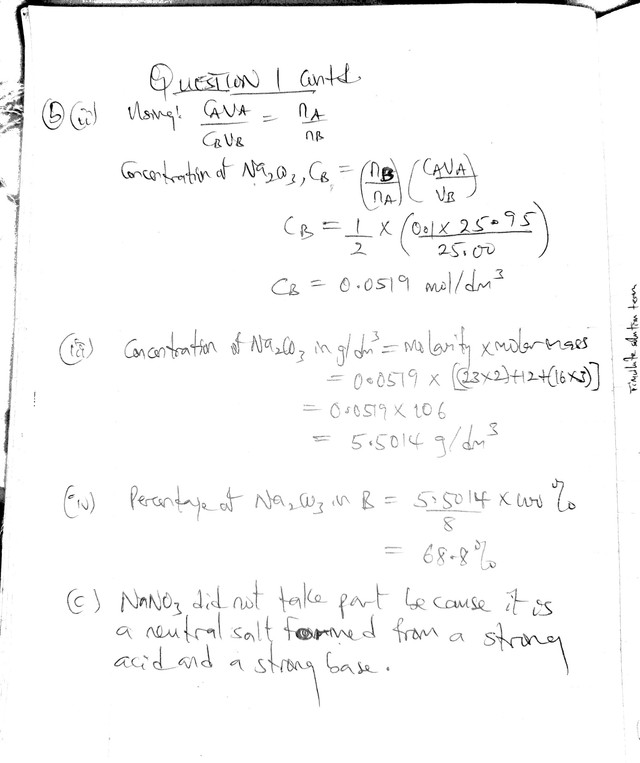 QUESTION 1 contd.
(b) (ii) Using: CAVA/CBVB = nA/nB
Concentration of Na2CO3, CB = (nB/nA) (CAVA/VB)
CB = 1/2 × (0.1 × 25.95/25.00)
CB = 0.0519 mol/dm³
(iii) Concentration of Na2CO3 in g/dm³ = molarity × molar mass
= 0.0519 × [(23×2)+12+(16×3)]
= 0.0519 × 106
= 5.5014 g/dm³
(iv) Percentage of Na2CO3 in B = 5.5014/8 × 100%
= 68.8%
(c) NaNO3 did not take part because it is
a neutral salt formed from a strong
acid and a strong base.
solution team